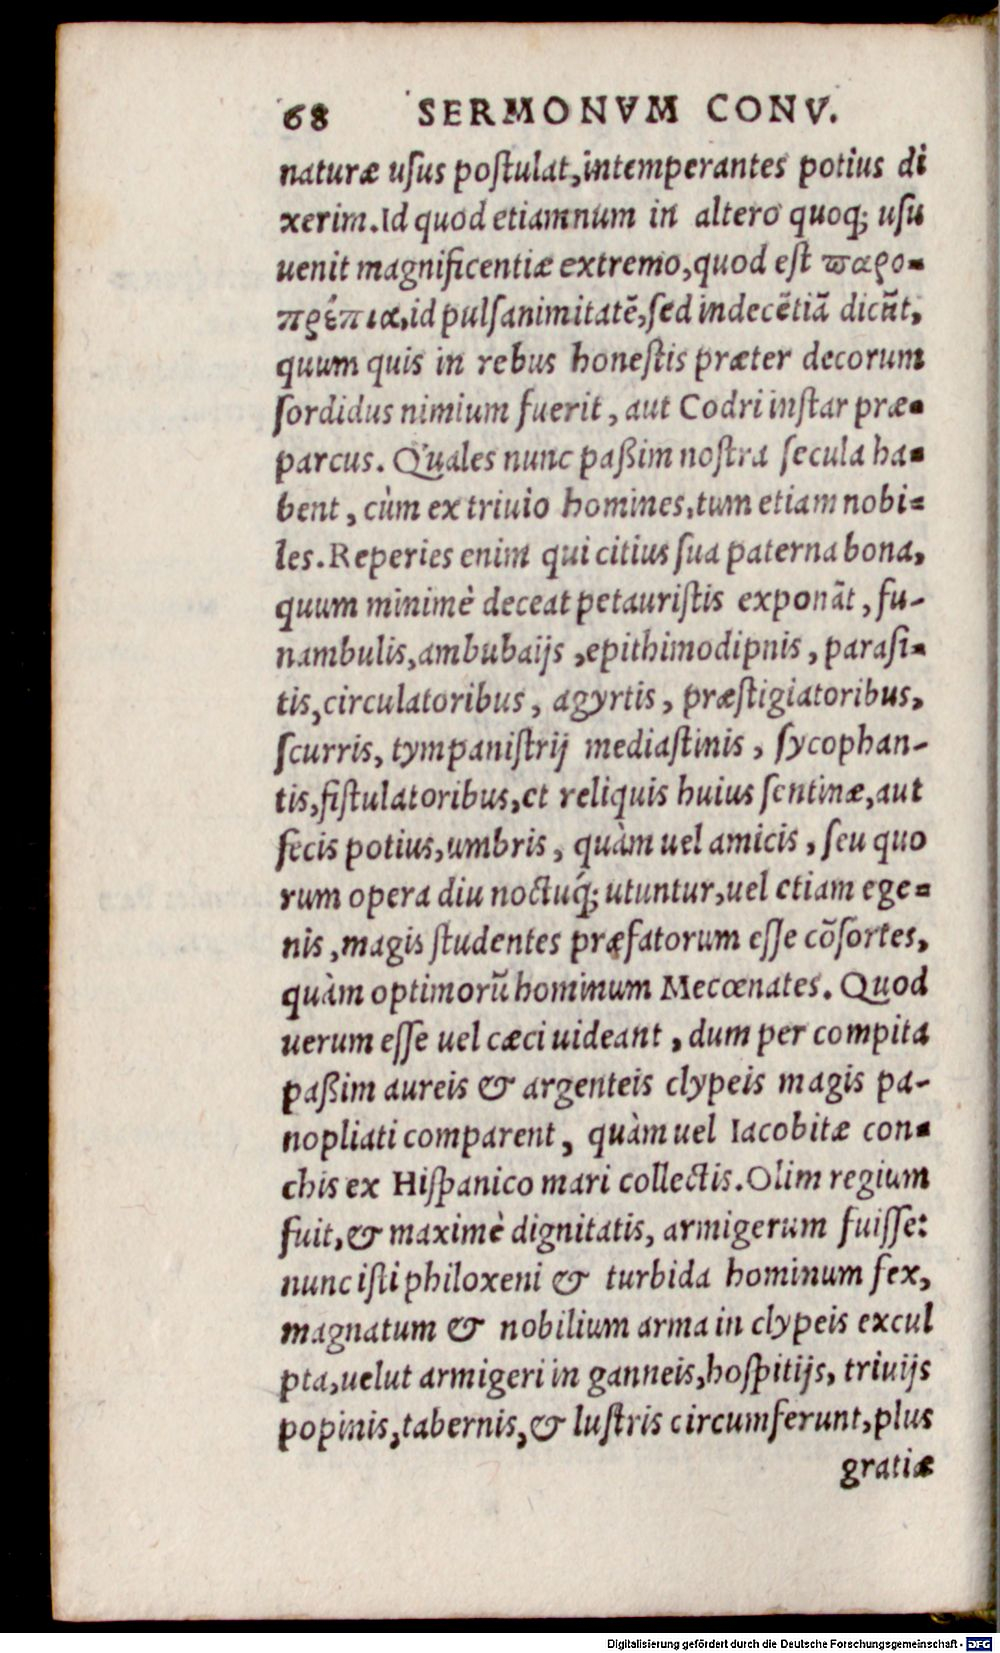 68 SERMONVM CONV.
naturæ usus poſtulat, intemperantes potius di
xerim. Id quod etiamnum in altero quoq; uſu
uenit magnificentiæ extremo, quod eſt ϖαρο-
πρέπια, id puſſanimitatē, ſed indecētiā dicūt,
quum quis in rebus honeſtis præter decorum
ſordidus nimium fuerit, aut Codri inſtar præ-
parcus. Quales nunc paßim noſtra ſecula ha-
bent, cùm ex triuio homines, tum etiam nobi-
les. Reperies enim qui citius ſua paterna bona,
quum minimè deceat petauriſtis exponāt, fu-
nambulis, ambubaijs, epithimodipnis, paraſi-
tis, circulatoribus, agyrtis, præſtigiatoribus,
ſcurris, tympaniſtrij mediaſtinis, ſycophan-
tis, fiſtulatoribus, et reliquis huius ſentinæ, aut
fecis potius, umbris, quàm uel amicis, ſeu quo
rum opera diu noctuq́; utuntur, uel etiam ege-
nis, magis ſtudentes præfatorum eſſe cōſortes,
quàm optimorū hominum Mecœnates. Quod
uerum eſſe uel cæci uideant, dum per compita
paßim aureis & argenteis clypeis magis pa-
nopliati comparent, quàm uel Iacobitæ con-
chis ex Hiſpanico mari collectis. Olim regium
fuit, & maximè dignitatis, armigerum fuiſſe:
nunc iſti philoxeni & turbida hominum fex,
magnatum & nobilium arma in clypeis excul
pta, uelut armigeri in ganneis, hoſpitijs, triuijs
popinis, tabernis, & luſtris circumferunt, plus
gratiæ
Digitalisierung gefördert durch die Deutsche Forschungsgemeinschaft - DFG